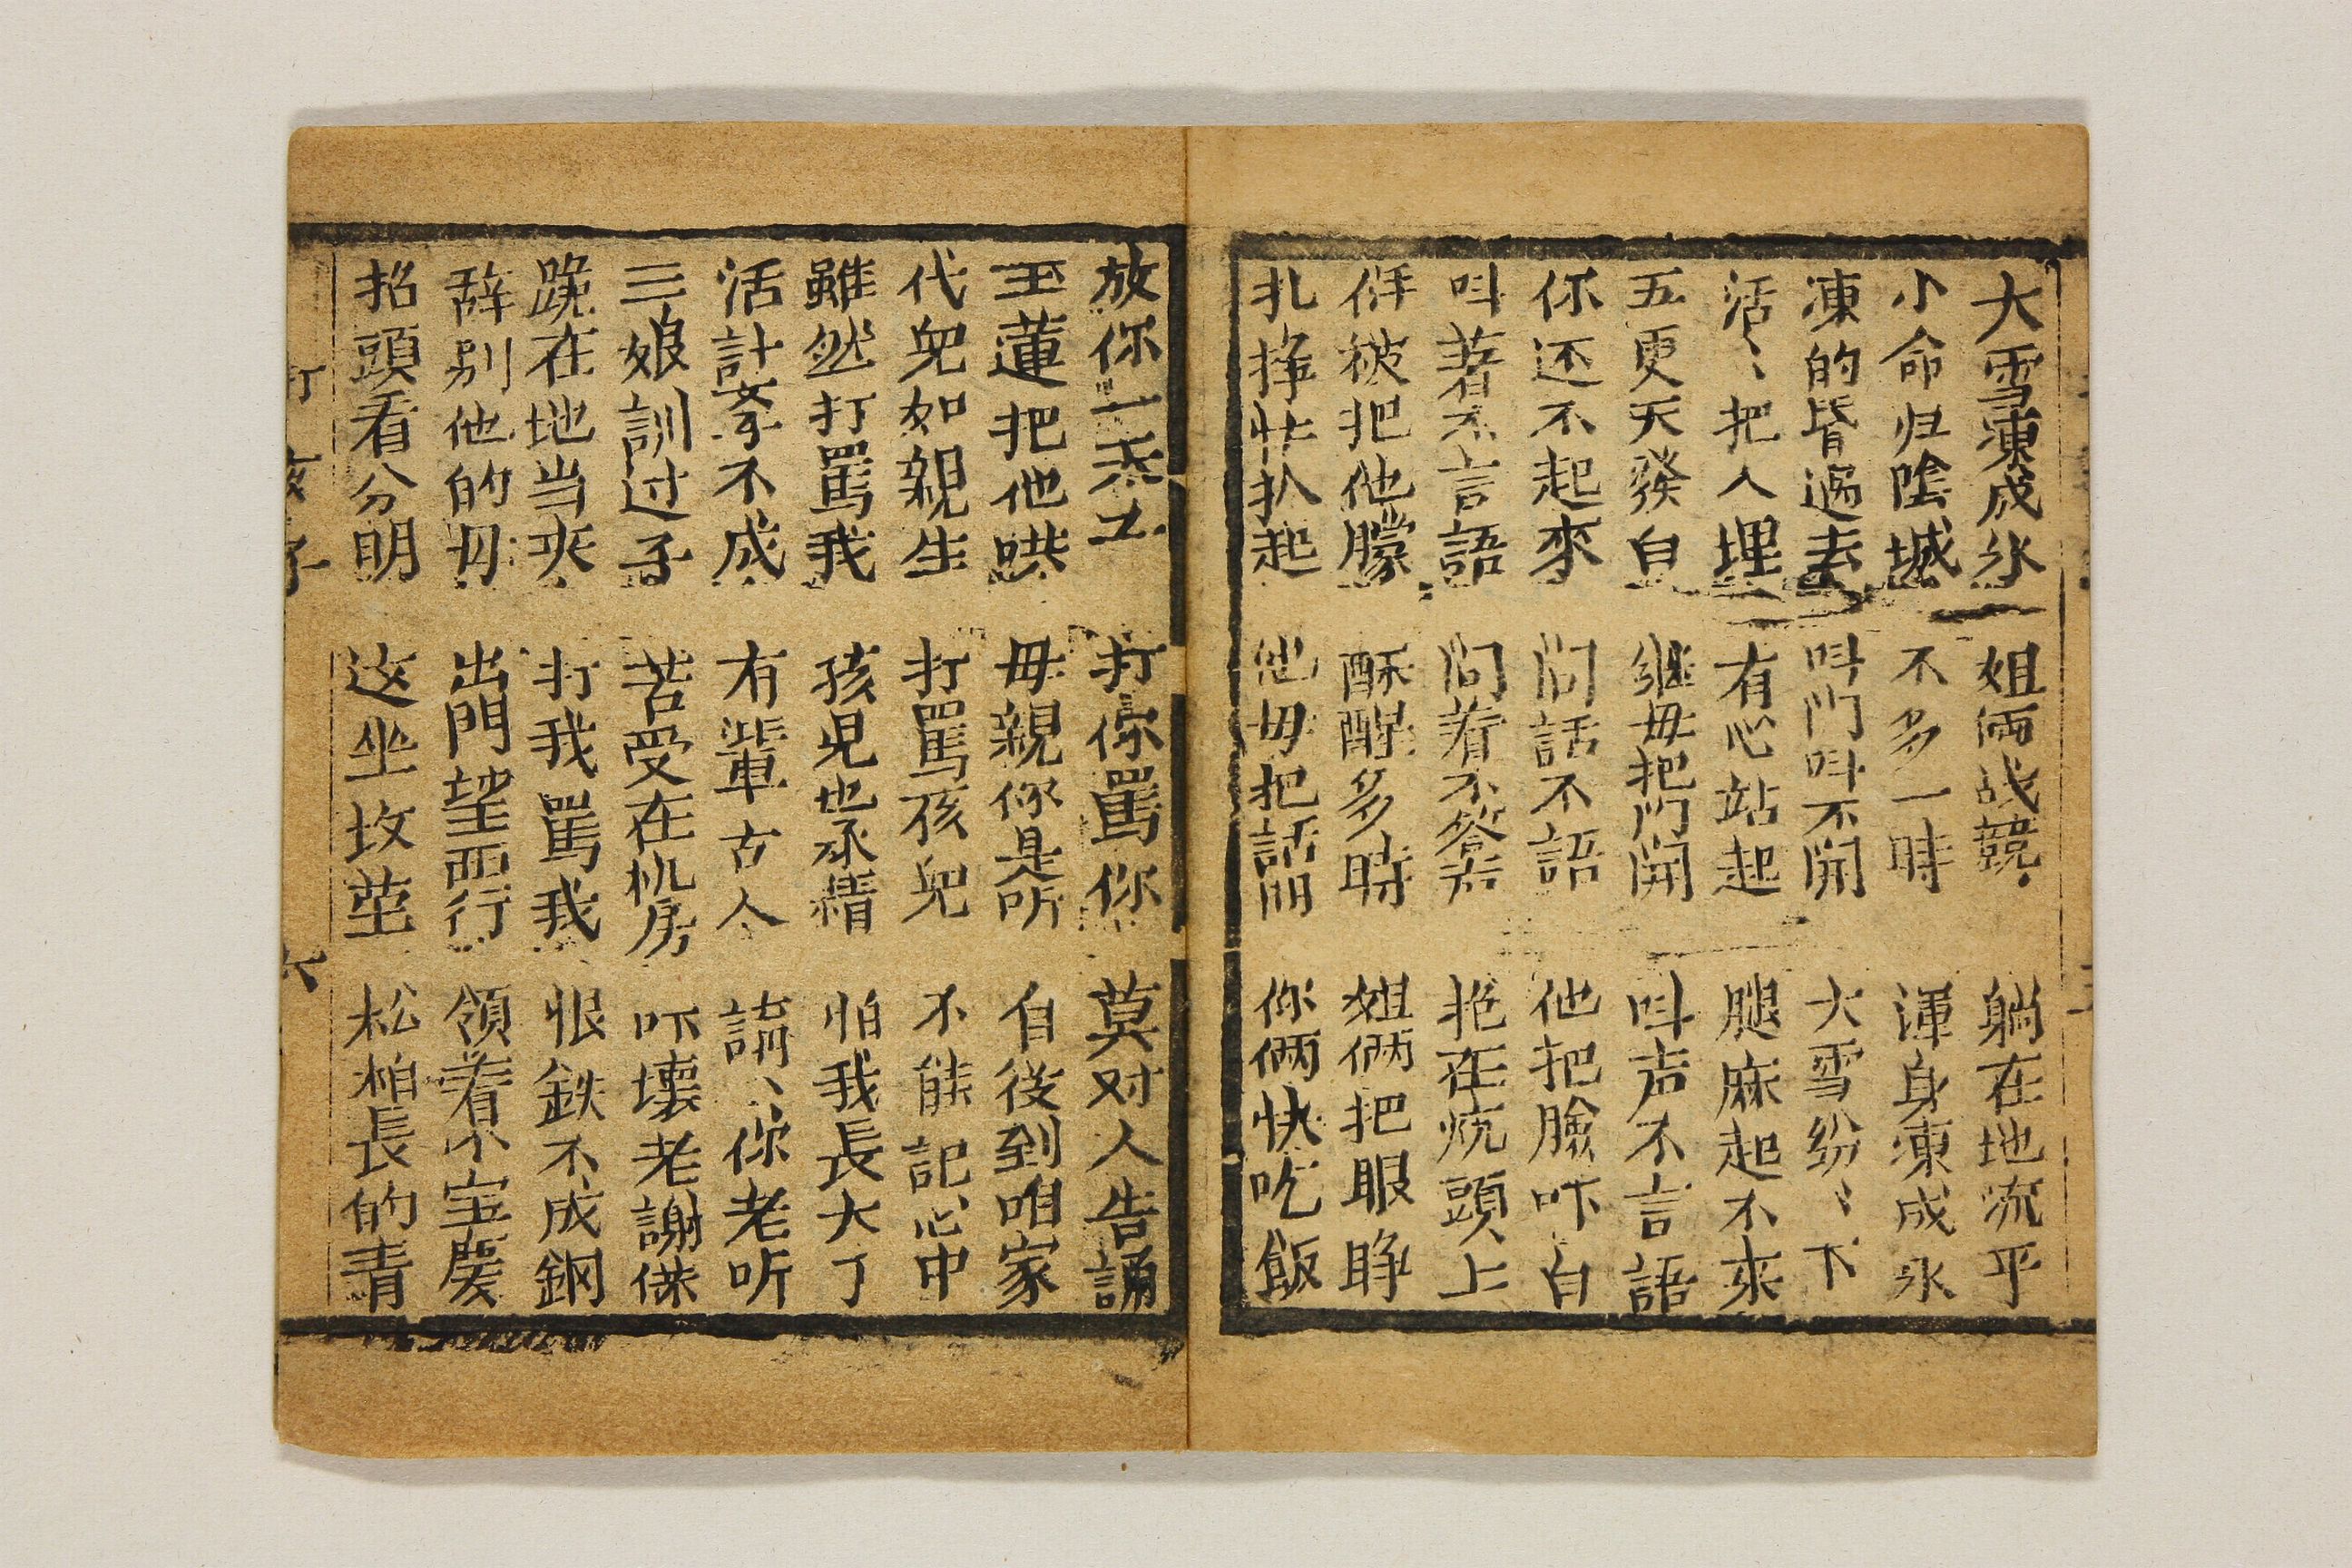 大雪凍成氷 姐両战競 躺在地流平
小命归陰城 不多一時 渾身凍成氷
凍的昏過去 呌门呌不開 大雪纷〻下
活〻把人埋 有心站起 腿麻起不來
五更天發白 继毋把门開 呌声不言語
你还不起來 问話不語 他把臉吓白
呌著不言語 问着不答 抱在炕頭上
把他朦 酥醒多時 姐俩把眼睁
扎挣扒起 他毋把話 你俩快吃飯
放你一 打你罵你 莫对人告誦
玉莲把他哄 毋親你是听 自後到咱家
代兒如親生 打罵孩兒 不能記心中
雖然打罵我 孩児也承情 怕我長大了
活計拿不成 有輩古人 請〻你老听
三娘訓过子 苦受在机房 吓壞老謝保
跪在地当夾 打我罵我 恨鉄不成鋼
辞别他的毋 出門望西行 領着小宝慶
招頭看分明 这坐坟茔 松柏長的青
打 孩子 六